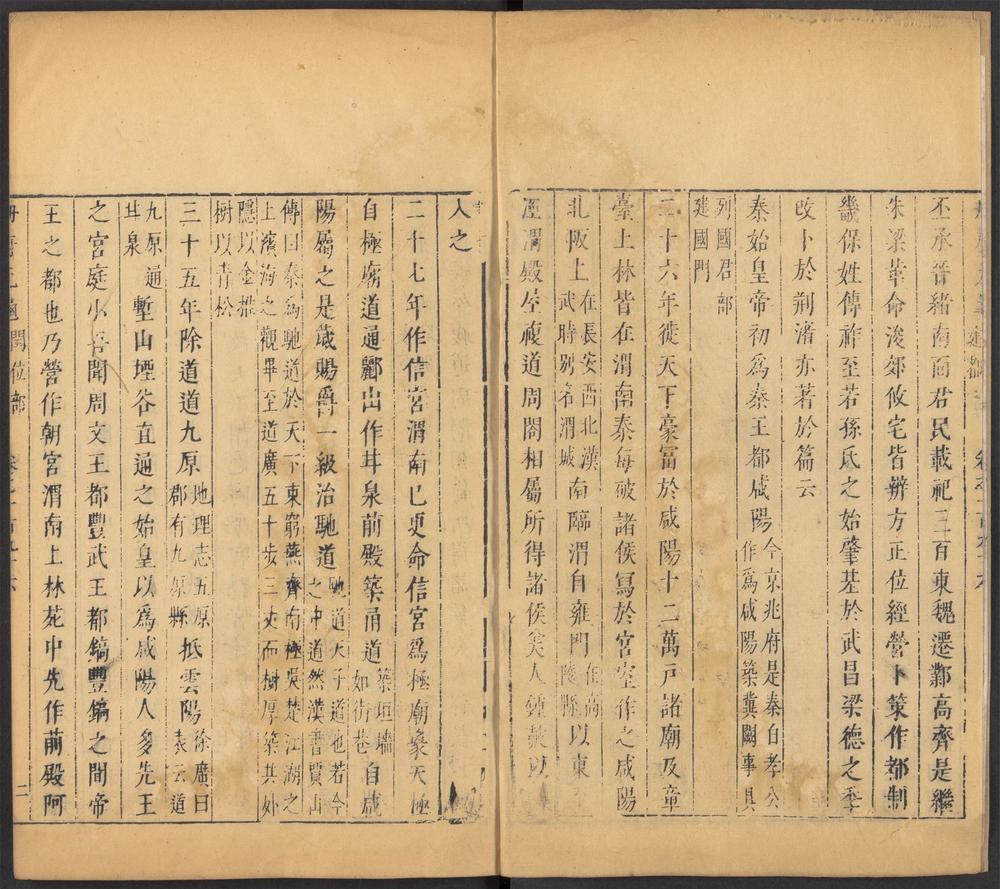 建都
卷之一百九十六
丕承晉緒南面君民載祀三百東魏遷鄴高齊是繼
朱梁革命浚郊攸宅皆辨方正位經營卜策作都制
畿保姓傳祚至若孫氏之始肇基於武昌梁德之季
改卜於荆渚亦著於篇云
秦始皇帝初爲秦王都咸陽今京兆府是秦自孝公作爲咸陽築冀闕事具
列國君部建國門
二十六年徙天下豪富於咸陽十二萬戸諸廟及章
臺上林皆在渭南秦每破諸侯寫於宮室作之咸陽
北阪上在長安西北漢武時別名渭城南臨渭自雍門在高陵縣以東
涇渭殿屋複道周閣相屬所得諸侯美人鍾鼓以
入之
二十七年作信宮渭南巳更命信宮爲極廟象天極
自極廟道通酈山作甘泉前殿築甬道築垣墻如街巷自咸
陽屬之是歲賜爵一級治馳道馳道天子道也若今之中道然漢書賈山
傳曰秦爲馳道於天下東窮燕齊南極吳楚江湖之
上濱海之觀畢至道廣五十步三丈而樹厚築其外
隱以金椎樹以青松
三十五年除道道九原地理志五原郡有九原縣抵雲陽徐廣曰表云道
九原通甘泉塹山堙谷直通之始皇以爲咸陽人多先王
之宮庭小吾聞周文王都豐武王都鎬豐鎬之間帝
王之都也乃營作朝宮渭南上林苑中先作前殿阿
閏位部
二